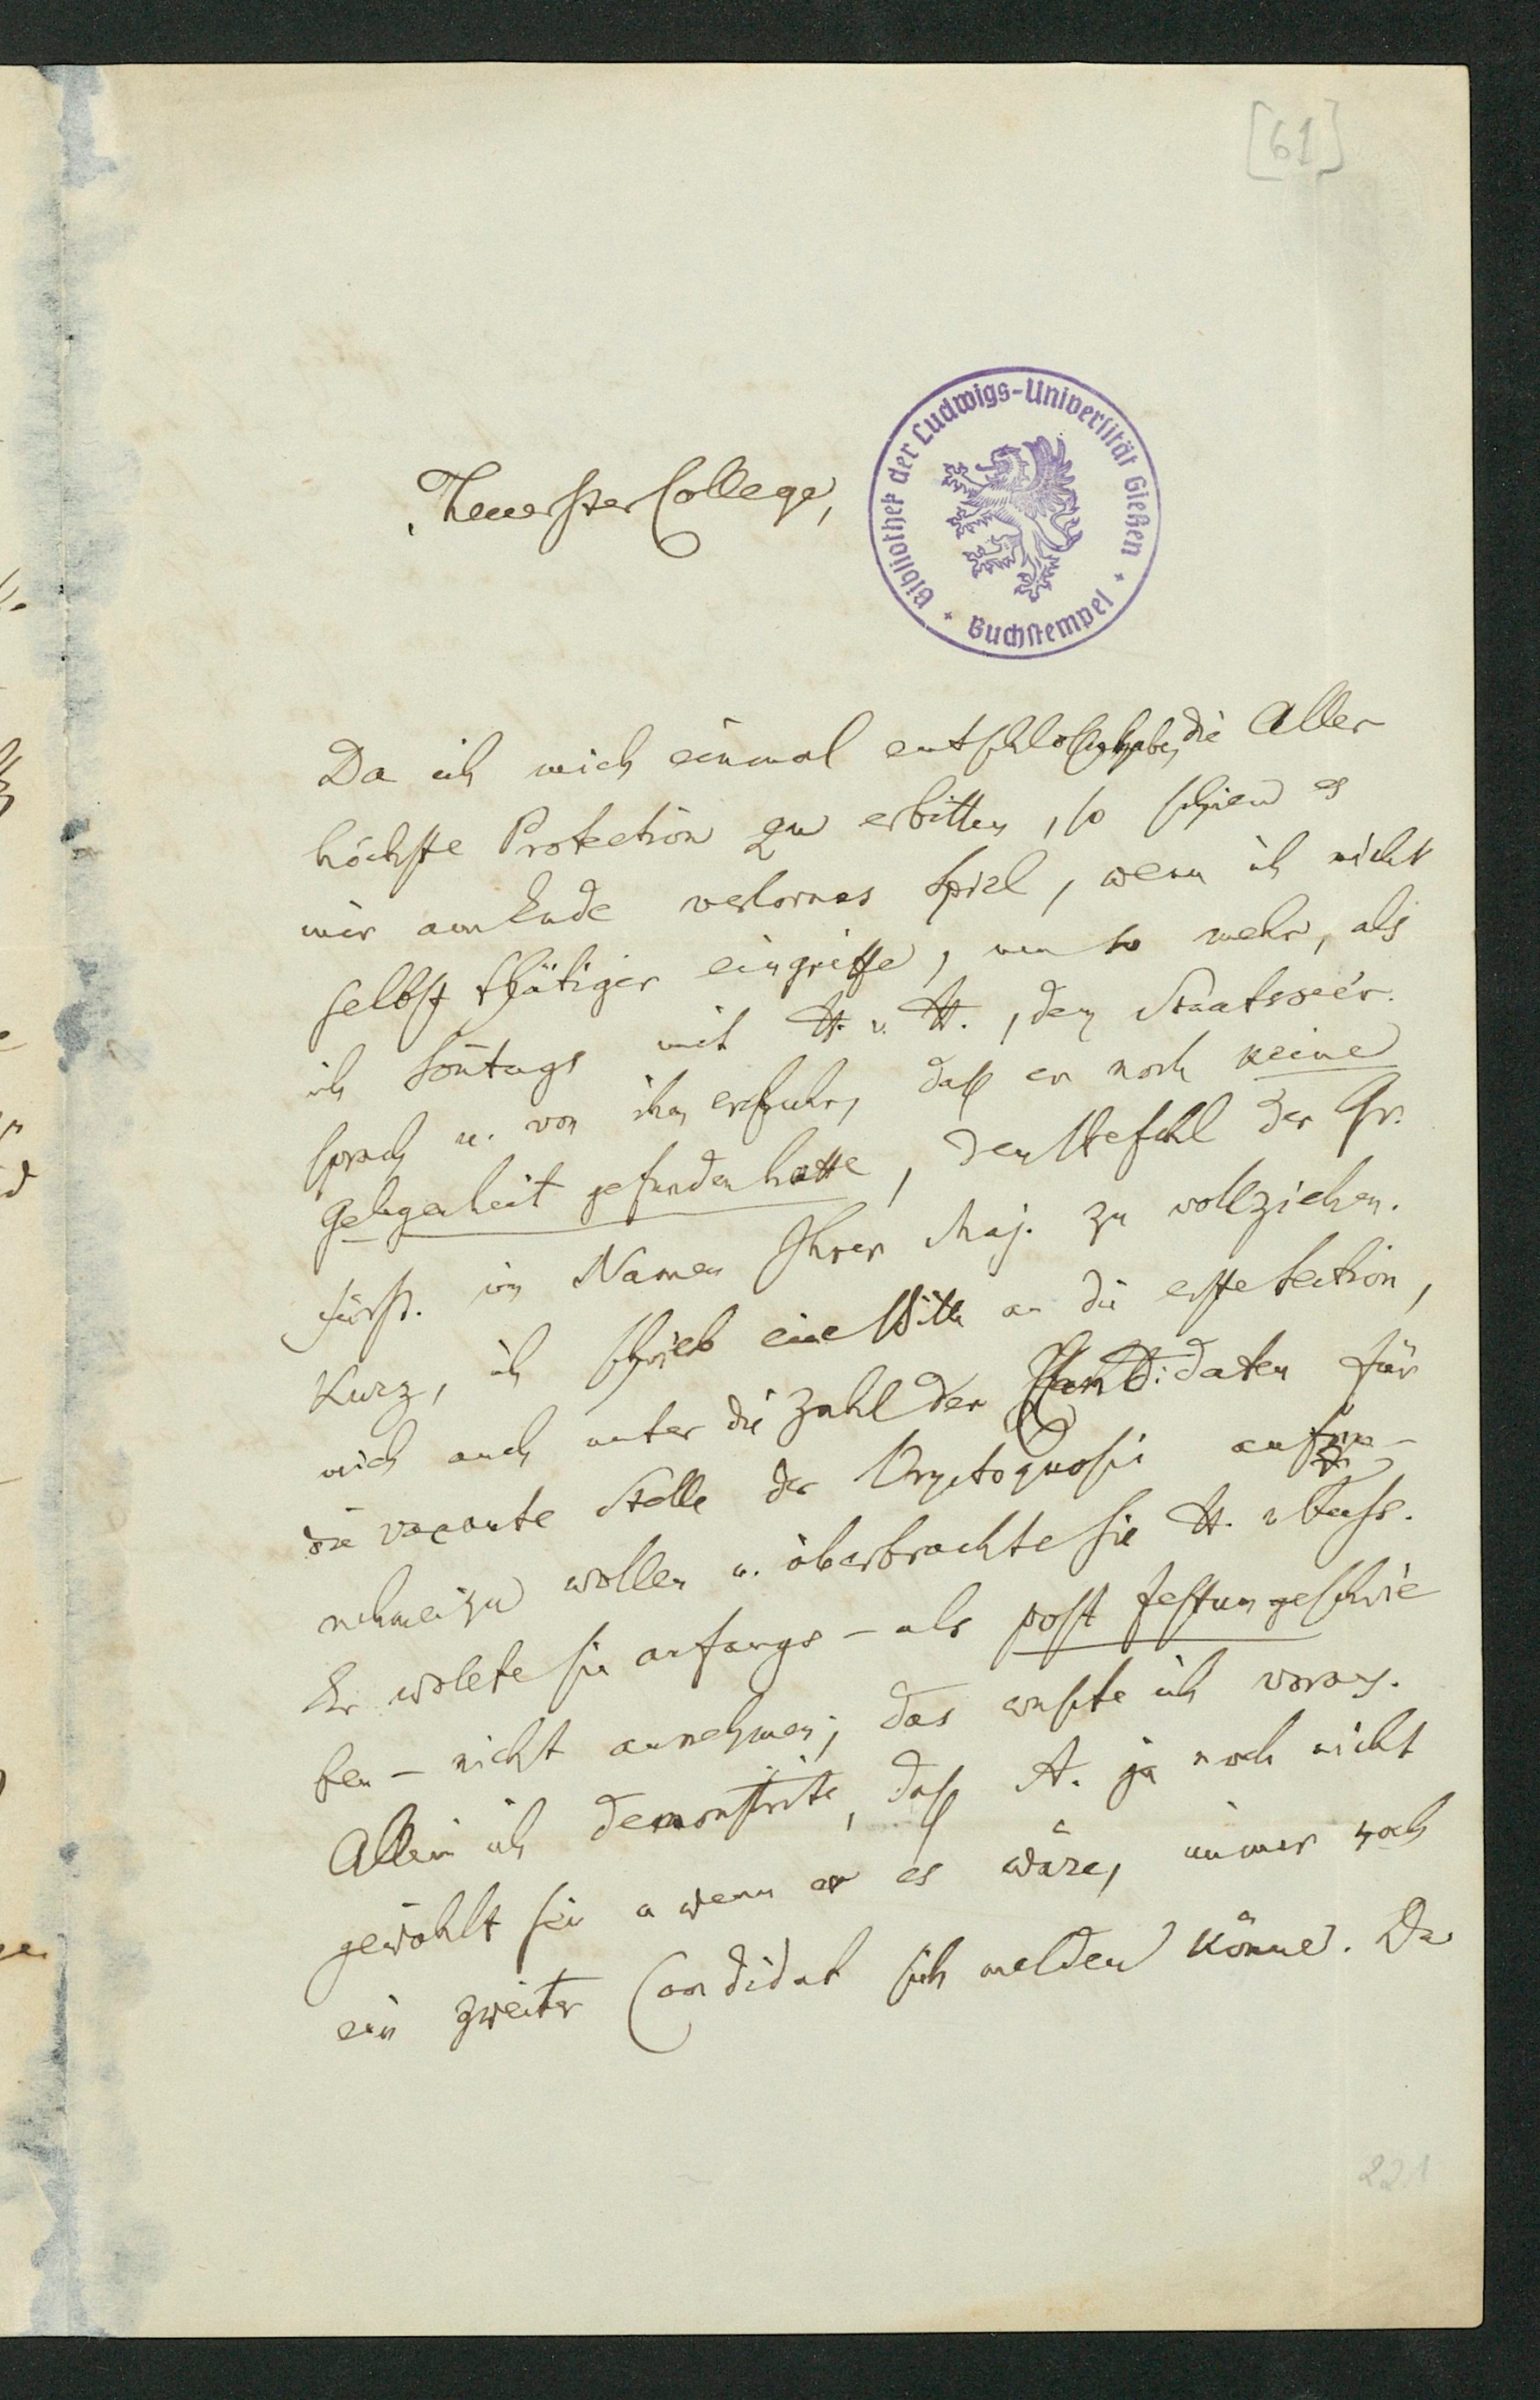 [61]
Bibliothek der Ludwigs-Universität Gießen
Buchstempel
Theuerster College,
Da ich mich einmal entschlossen habe, die Aller-
höchste Protection zu erbitten, so schien es
mir am Ende verlornes Spiel, wenn ich nicht
selbst thätiger eingriffe, um so mehr, als
ich Sontags mit H. v. H., dem
sprach u. von ihm erfuhr, daß er noch keine
Gelegenheit gefunden hatte, den Befehl der Gr.
fürst. im Namen Ihrer Maj. zu vollziehen.
Kurz, ich schrieb eine Bitte an die erste Section,
mich auch unter die Zahl der Kandidaten für
die vacante Stelle der aufzu-
nehmen zu wollen u. überbrachte sie H. v Fuss.
Er wollte sie anfangs – als post festum geschrie
ben – nicht annehmen; das wußte ich voraus.
Allein ich demonstrirte, daß A. ja noch nicht
gewählt sei u wenn er es wäre, immer noch
ein zweiter Candidat sich melden könne. Da
221